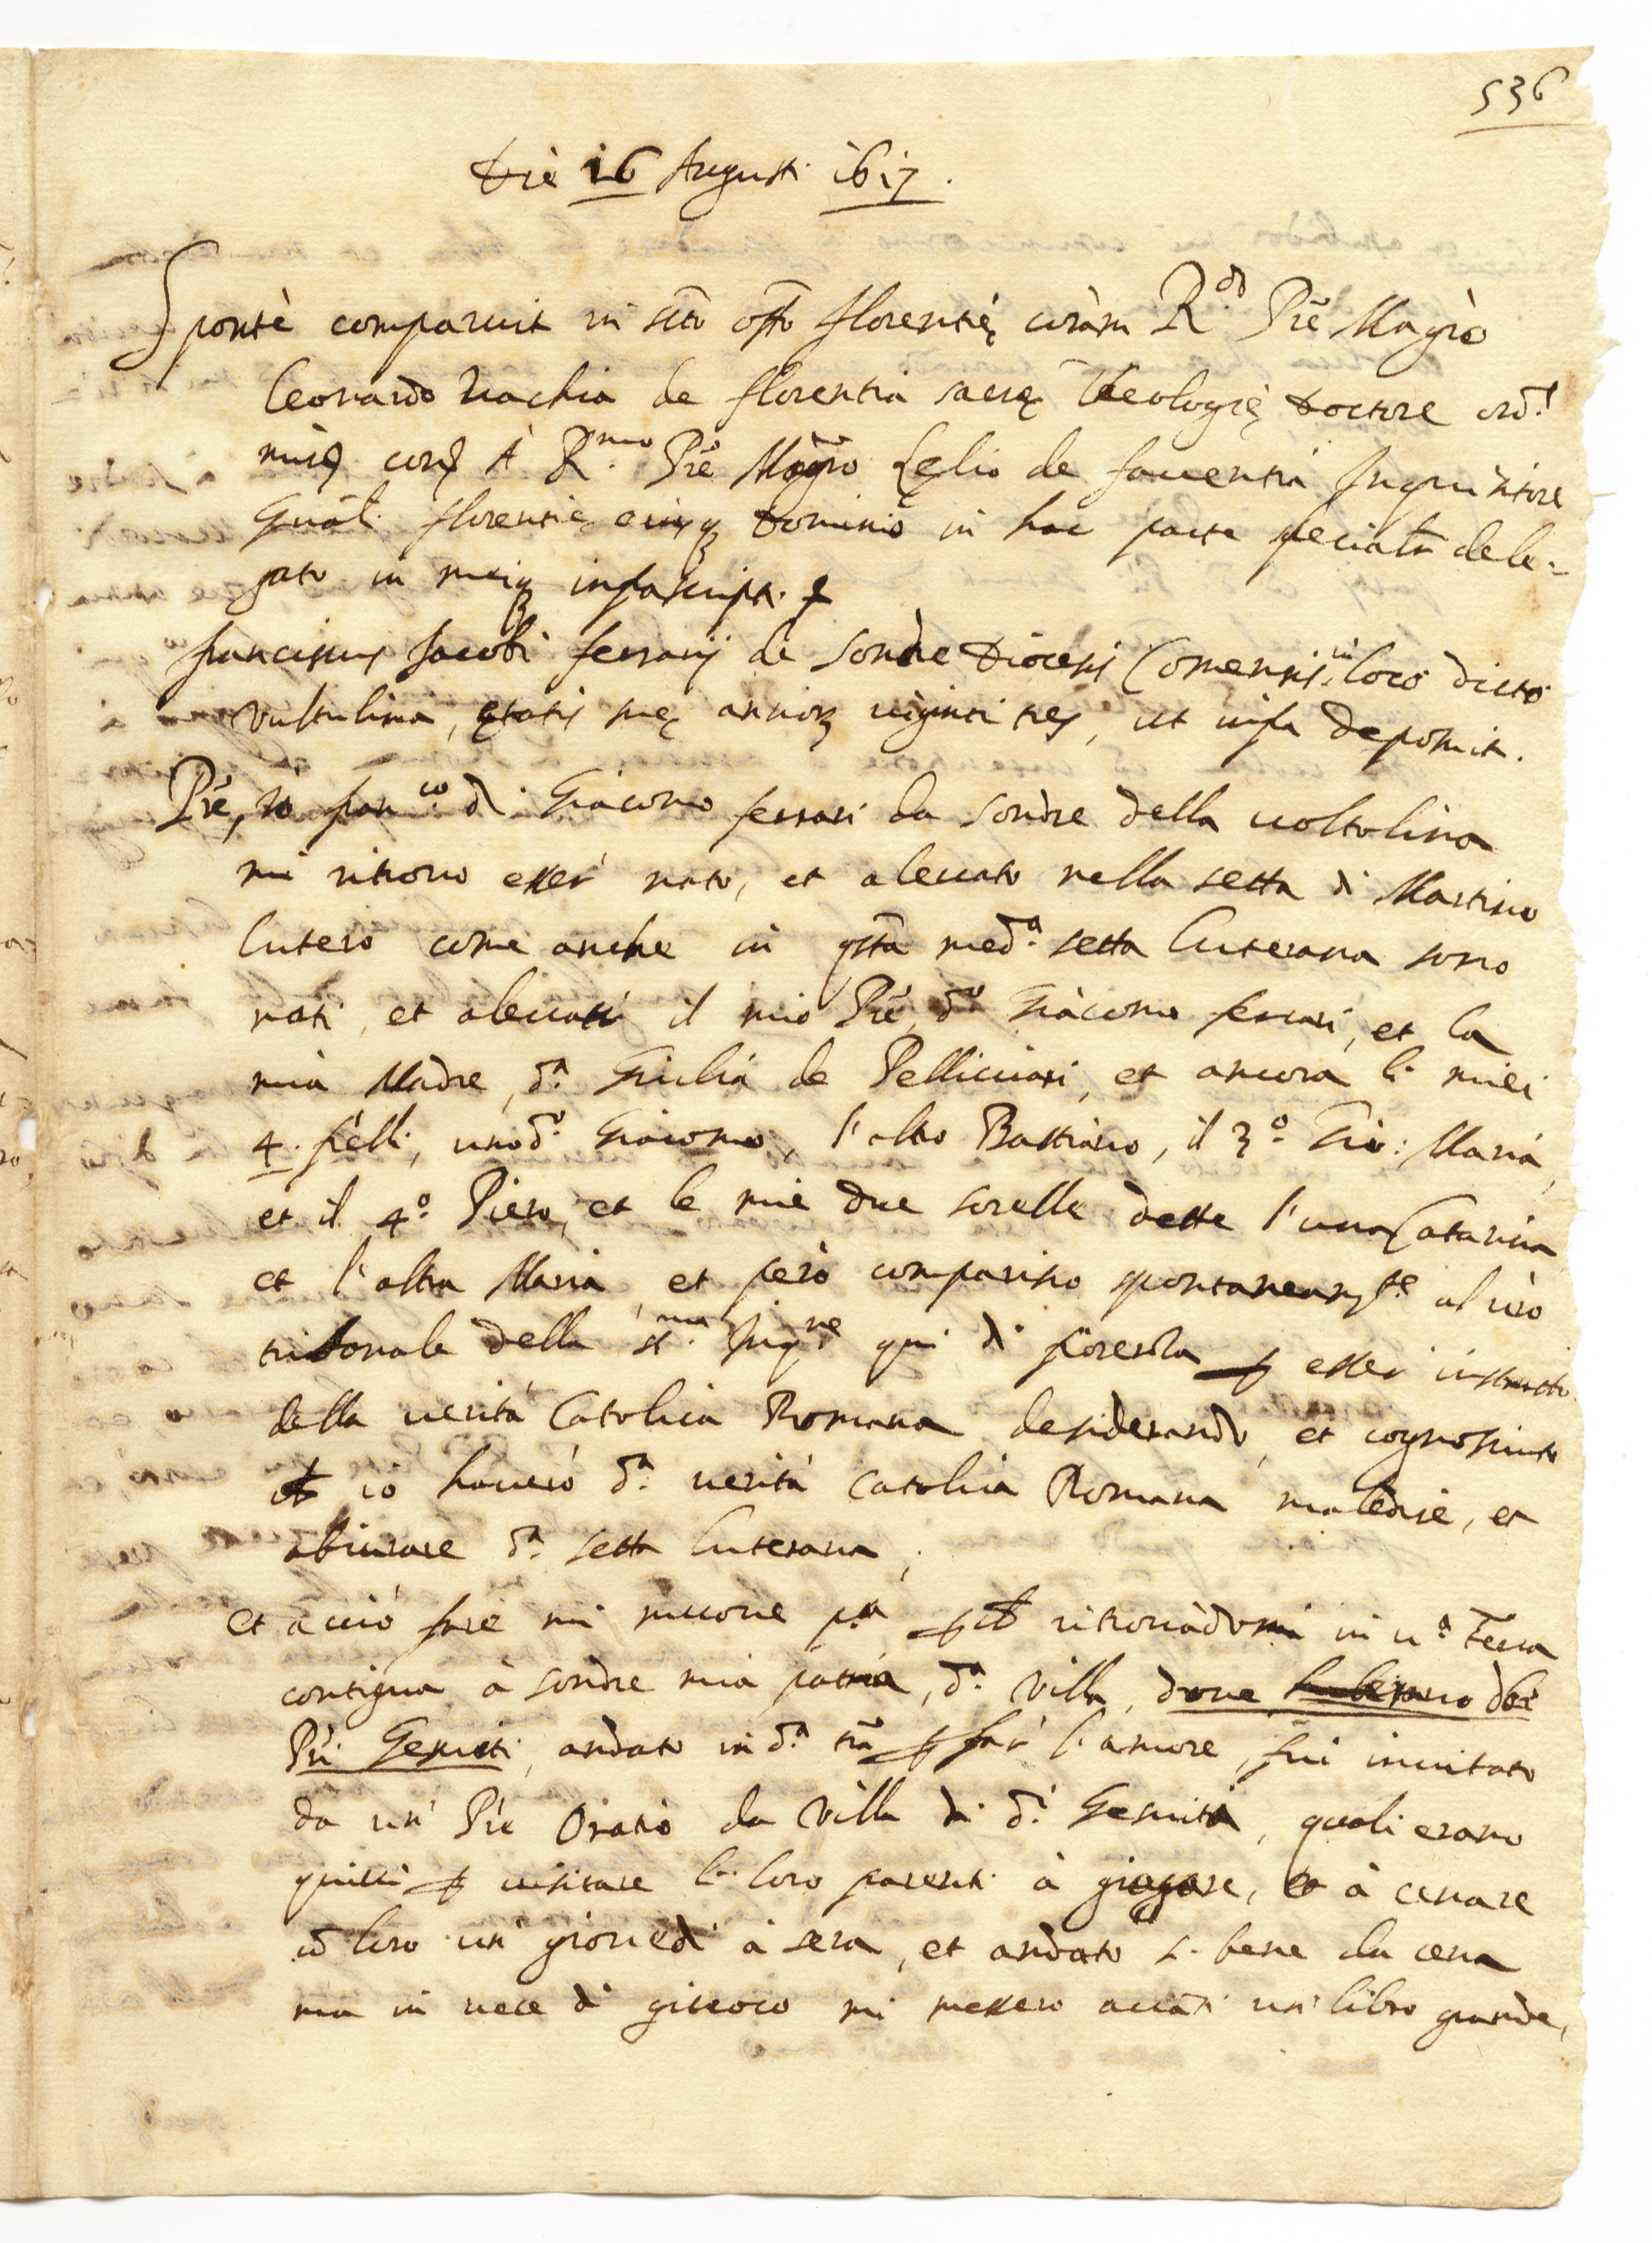 536
Diè 16 Augusti 1617.
Spontè comparuit in sto offo florentię coràm R.do Prē Magrò
Leonardo Vachia de florentia sacrę Theologię Doctore ord.
mīs conv A R.mo Prē Magrō Lęlio de faventia Inquisitore
Gnāl. florentię eiusq Dominio in hac parte speciatr dele-
gato in meiq infrascript.
franciscus Jacobi ferrarij de Sondre Diocesis Comensis in loco dicto
Vultulina, ętatis suę annorz viginti tres, ut infa deposuit.
Prē, io fran.co di Giacomo ferrari da Sondre della voltolina
mi ritrovo esser nato, et alevato nella setta di Martino
lutero come anche in qsta med.a setta luterana sono
nati, et alevati il mio Prē, do Giàcomo ferrari, et la
mia Madre, d.a Giulia de Pellicciari, et ancora li miei
4. frelli, uno d.o Giacomo, l'altro Bastiàno, il 3.o Gio: Maria,
et il 4.o Piero, et le mie due sorelle dette l'una Catarina
et l'altra Maria, et però comparisco spontaneamte al vro
tribonale della s.ma Inqne qui di fiorenza p esser instrutto
della verità Catolica Romana desiderando, et cognosciuto
ch io haverò d.a verità catolica Romana maledire, et
abiurare d.a setta luterana;
et acciò fare mi muove p.a pch ritrovàdomi in u.a Terra
contigua à sondre mia patria, d.a Villa, dove habitano doi
Pri Gesuiti, andato in d.a trā p far l'amore, fui invitato
da un Prē Oratio da Villa di d.i Gesuiti, quali erano
quivi p visitare li loro parenti à giogare, et à cenare
cō loro un giovedì à sera, et andato s. bene da cena
ma in vece di giuoco mi messero avāti un libro grande,